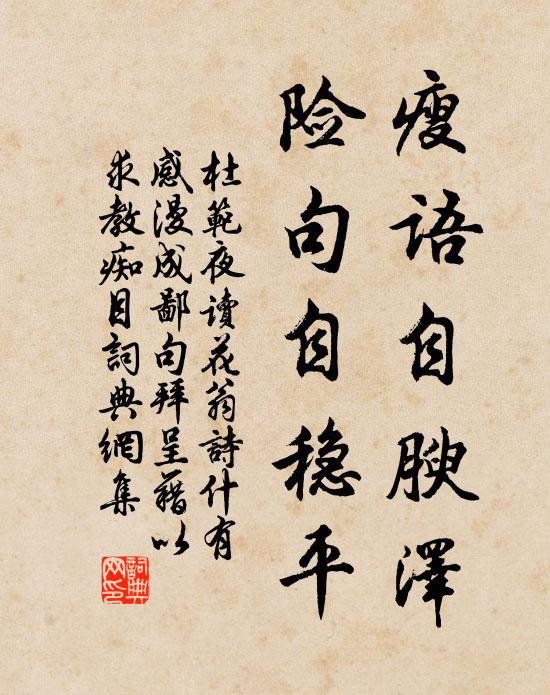 瘦语自腴澤
险句自稳平
杜範夜读花翁詩什有
感漫成鄙句拜呈藉以
求教痴目詞典網集
詞典网印